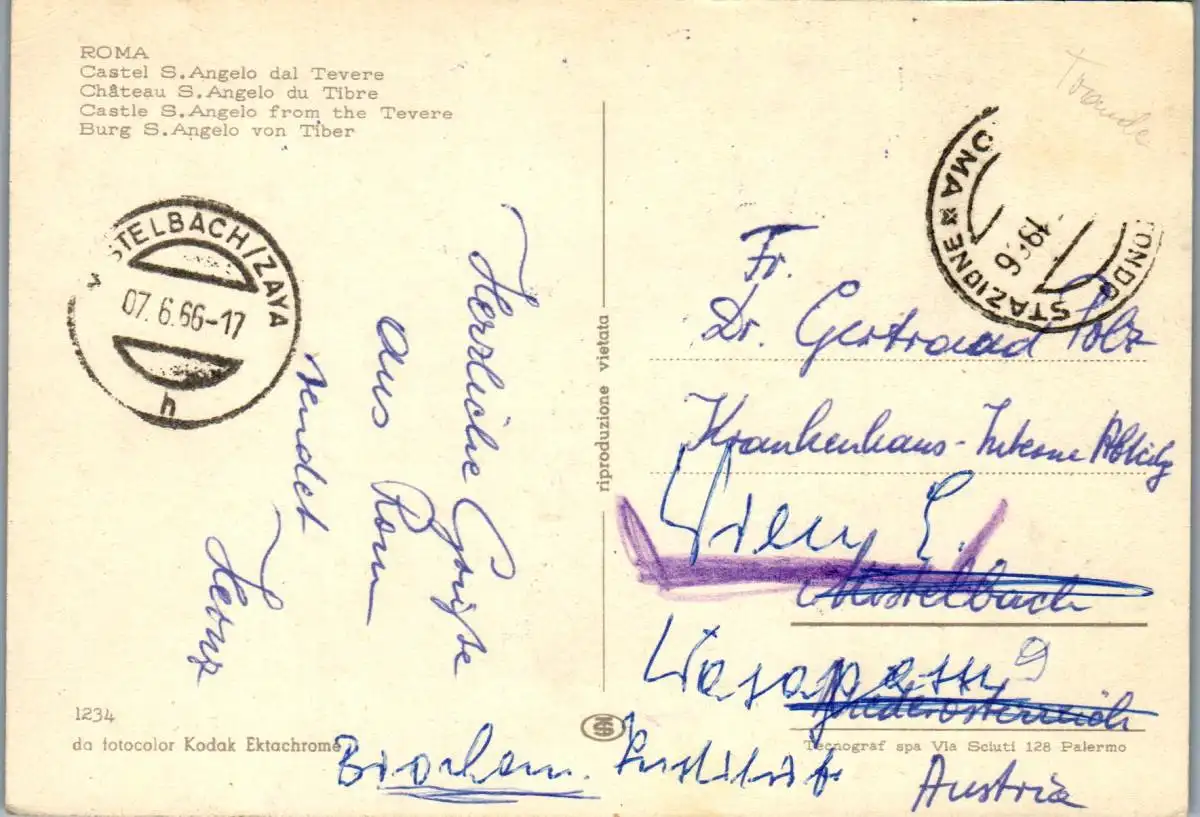 ROMA
Castel S.Angelo dal Tevere
Château S.Angelo du Tibre
Castle S.Angelo from the Tevere
Burg S.Angelo von Tiber
STELBACH/ZAYA
07. 6.66-17
h
Herzliche Grüße
aus Rom
sendet
1234
da fotocolor Kodak Ektachrome
riproduzione vietata
OMA * STAZIONE
1966
Fr.
Dr. Gertraud Polz
Krankenhaus - Interne
Wien
Mistelbach
Niederösterreich
Biochem. Institut
Austria
Tecnograf spa Via Sciuti 128 Palermo